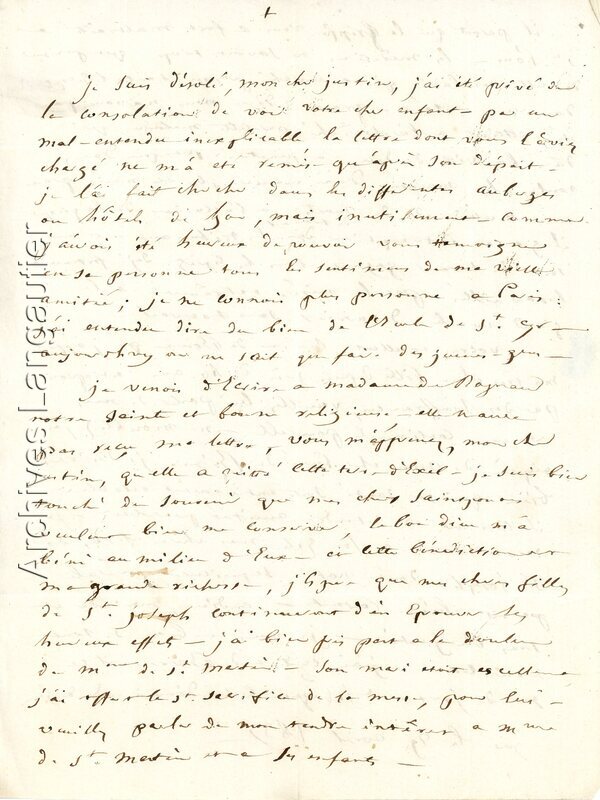 +
je suis désolé, mon cher justin, j'ai été privé de
la consolation de voir votre cher enfant - par un
mal-entendu inexplicable la lettre dont vous l'aviez
chargé ne m'a été remise qu'après son départ -
je l'ai fait chercher dans les différentes auberges
ou hôtels de Lyon, mais inutilement - comme
j'aurois été heureux de pouvoir vous témoigner
en sa personne tous les sentimens de ma vieille
amitié; je ne connois plus personne a Paris:
j'ai entendu dire du bien de l'Ecole de St. Cyr -
aujourdhuy on ne sait que faire des jeunes-gens -
je venois d'Ecrire a madame de
votre sainte et bonne religieuse - elle n'aura
pas reçu ma lettre, vous m'apprenez, mon cher
justin, qu'elle a quitté cette terre d'Exil - je suis bien
touché du souvenir que mes chers
veulent bien me conserver, le bon dieu m'a
béni au milieu d'Eux et cette bénédiction est
ma grande richesse, j'Espère que mes chères filles
de St. joseph continueront d'en Eprouver les
heureux effets - j'ai bien pris part a la douleur
de mme de St. martin - son mari etoit excellent
j'ai offert le St. sacrifice de la messe, pour lui -
veuillez parler de mon tendre intérêt a mme
de St. martin et a ses enfants -
Archives-Lapasantier